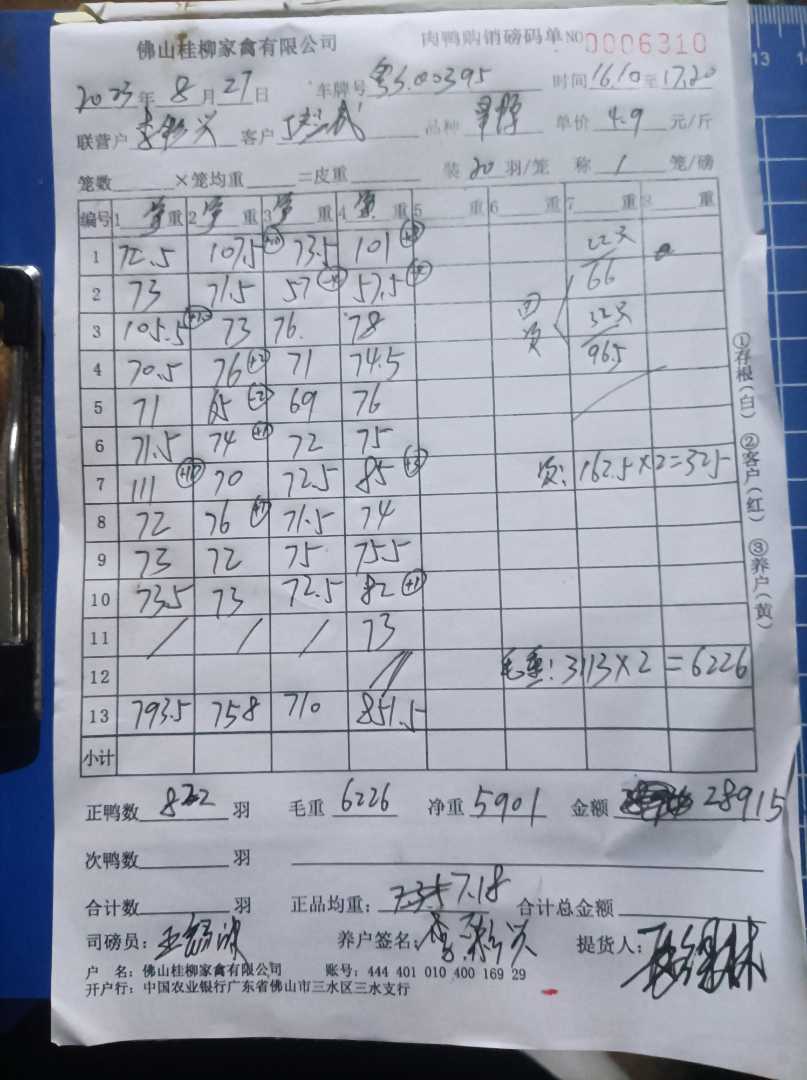 佛山桂柳家禽有限公司 肉鸭购销磅码单NO 0006310
2023年8月27日 车牌号 粤S.00395 时间16.10至17.20
联营户 客户 品种 单价 4.9 元/斤
笼数 ×笼均重 =皮重 装 20 羽/笼 称 1 笼/磅
编号 1 重 2 重 3 重 4 重 5 重 6 重 7 重 8 重
1 72.5 107.5 73.5 101 22只
2 73 71.5 57 57.5 66
3 105.5 73 76. 78 回 32只
4 70.5 76 +2 71 74.5 96.5
5 71 65 -2 69 76
6 71.5 74 +1 72 75
7 111 +10 70 72.5 85 +3 162.5×2=325
8 72 76 +1 71.5 74
9 73 72 75 75.5
10 73.5 73 72.5 82 +1
11 / / / 73
12 // 毛重: 3113×2=6226
13 793.5 758 710 851.5
小计
正鸭数 822 羽 毛重 6226 净重 5901 金额 28915
次鸭数 羽
合计数 羽 正品均重: 7.18 合计总金额
司磅员: 养户签名: 提货人:
户 名: 佛山桂柳家禽有限公司 账号: 444 401 010 400 169 29
开户行: 中国农业银行广东省佛山市三水区三水支行
①存根(白) ②客户(红) ③养户(黄)
13